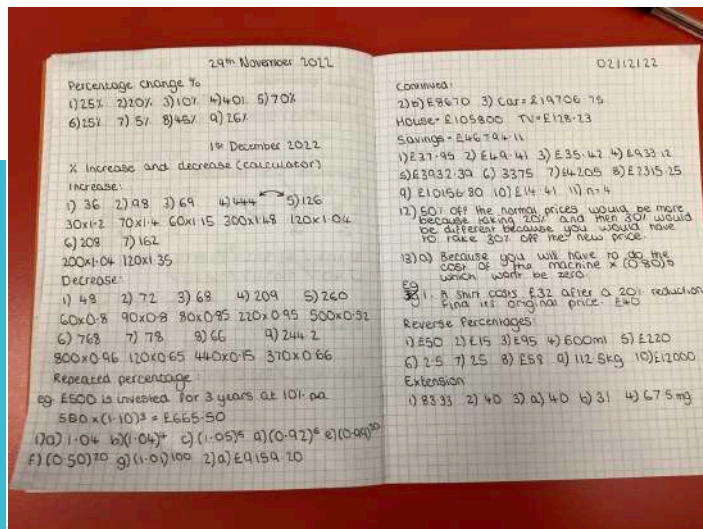 29th November 2022
Percentage change %
1) 25% 2) 20% 3) 10% 4) 40% 5) 70%
6) 25% 7) 5% 8) 45% 9) 26%
1st December 2022
% Increase and decrease (calculator)
Increase:
1) 36 2) 98 3) 69 4) 444 5) 126
30x1.2 70x1.4 60x1.15 300x1.48 120x1.04
6) 208 7) 162
200x1.04 120x1.35
Decrease:
1) 48 2) 72 3) 68 4) 209 5) 260
60x0.8 90x0.8 80x0.85 220x0.95 500x0.52
6) 768 7) 78 8) 66 9) 244.2
800x0.96 120x0.65 440x0.15 370x0.66
Repeated percentage:
eg. £500 is invested for 3 years at 10% pa
500 x (1.10)³ = £665.50
1) a) 1.04 b) (1.04)⁴ c) (1.05)⁵ d) (0.92)⁶ e) (0.99)²⁰
f) (0.50)²⁰ g) (1.01)¹⁰⁰ 2) a) £9159.20
02/12/22
Continued:
2) b) £8670 3) Car = £19706.75
House = £105800 TV = £128.23
Savings = £46794.11
1) £37.95 2) £49.41 3) £35.42 4) £933.12
5) £3932.39 6) 3375 7) £4205 8) £2315.25
9) £10156.80 10) £14.41 11) n=4
12) 50% off the normal prices would be more
because taking 20% and then 30% would
be different because you would have
to take 30% off the new price.
13) a) Because you will have to do the
cost of the machine x (0.80)⁵
which won't be zero.
Eg
1. A shirt costs £32 after a 20% reduction
Find its original price. £40
Reverse Percentages:
1) £50 2) £15 3) £95 4) 600ml 5) £220
6) 2.5 7) 25 8) £58 9) 112.5kg 10) £12000
Extension
1) 83.33 2) 40 3) a) 40 b) 31 4) 67.5mg